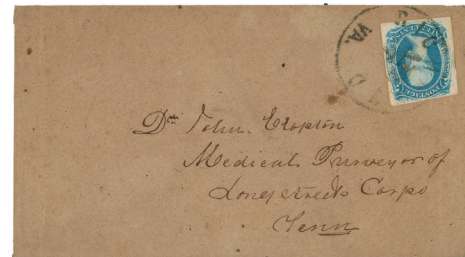 VA.
POSTAGE
Dr. John. Clopton
Medical Purveyor of
Longstreets Corps
Tenn